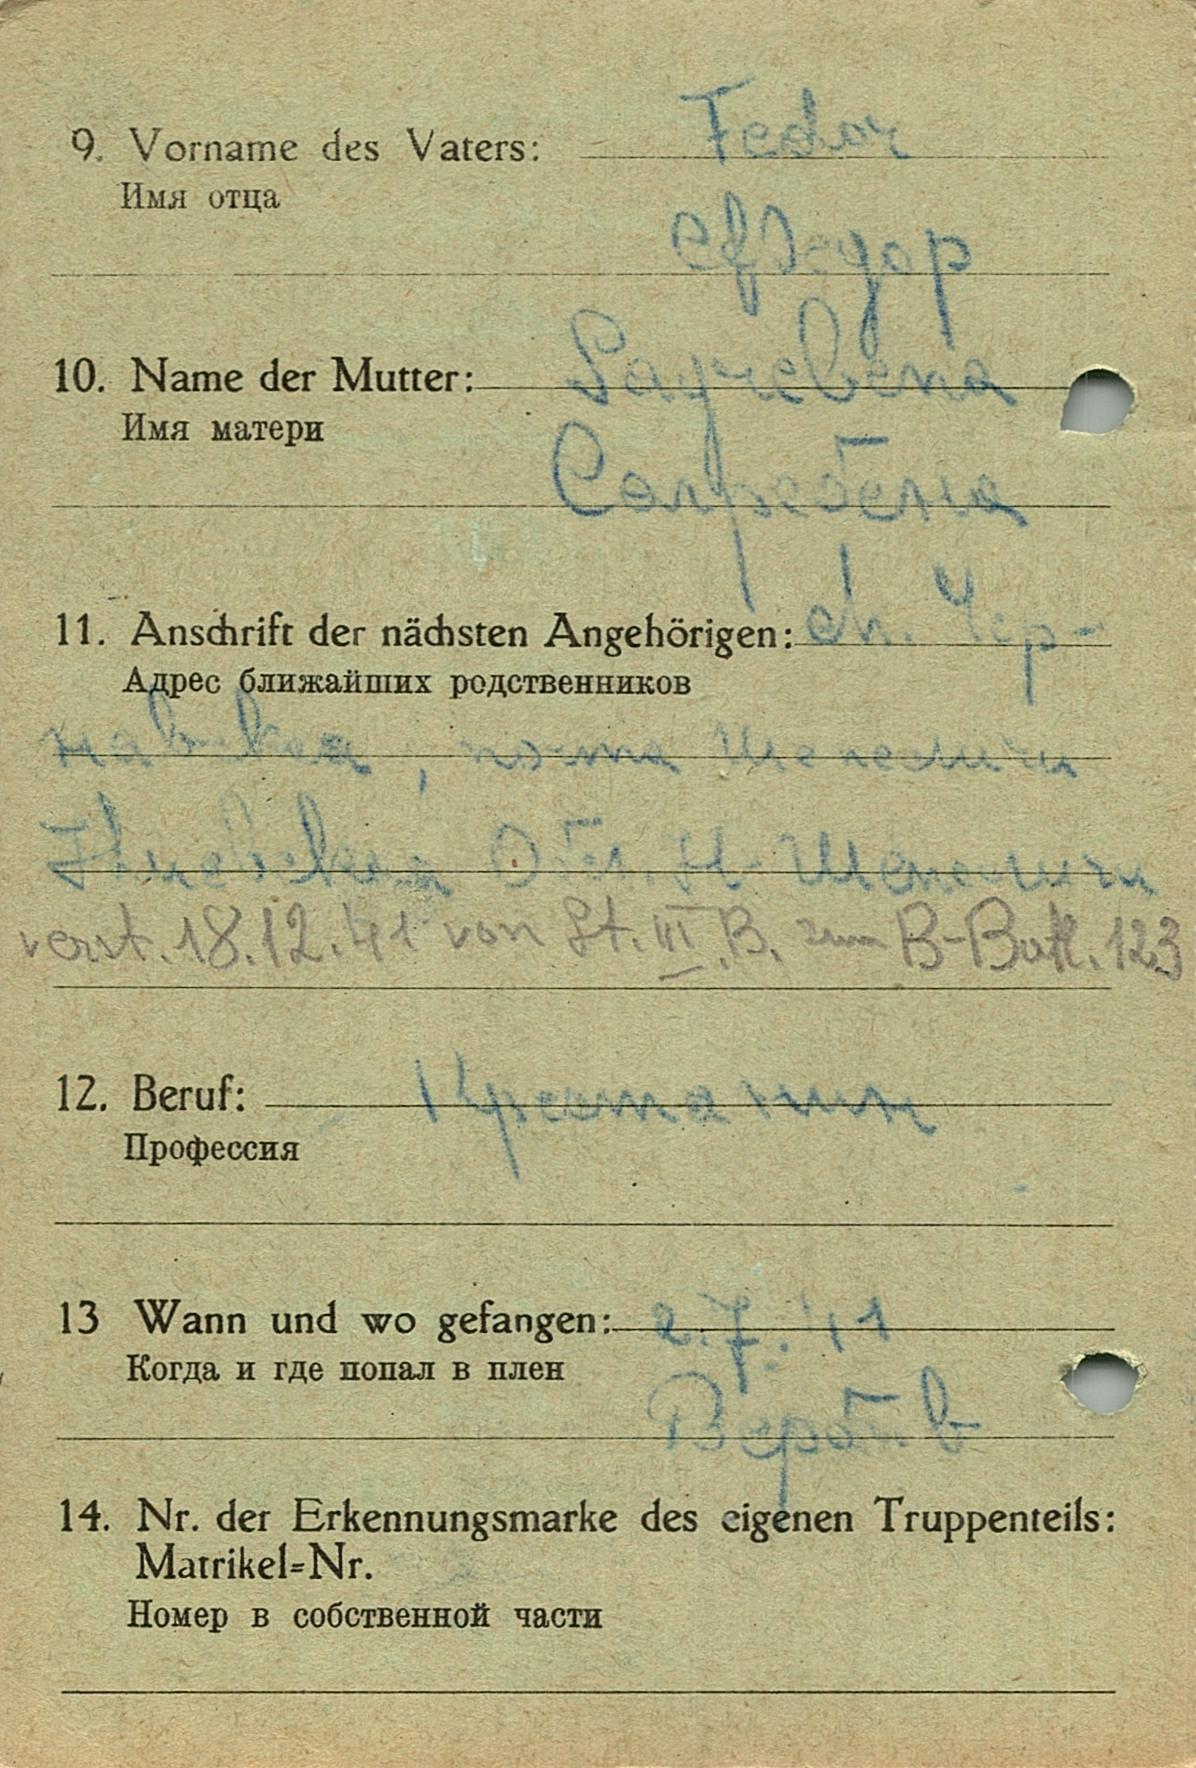 9. Vorname des Vaters: Fedor
Имя отца
10. Name der Mutter:
Имя матери
11. Anschrift der nächsten Angehörigen:
Адрес ближайших родственников
почта Шепеличи
Обл. Н-Шепеличи
verst. 18.12.41 von St. III. B. zum B-Batl. 123
12. Beruf: Крестянин
Профессия
13 Wann und wo gefangen: 2.7.41
Когда и где попал в плен
14. Nr. der Erkennungsmarke des eigenen Truppenteils:
Matrikel=Nr.
Номер в собственной части